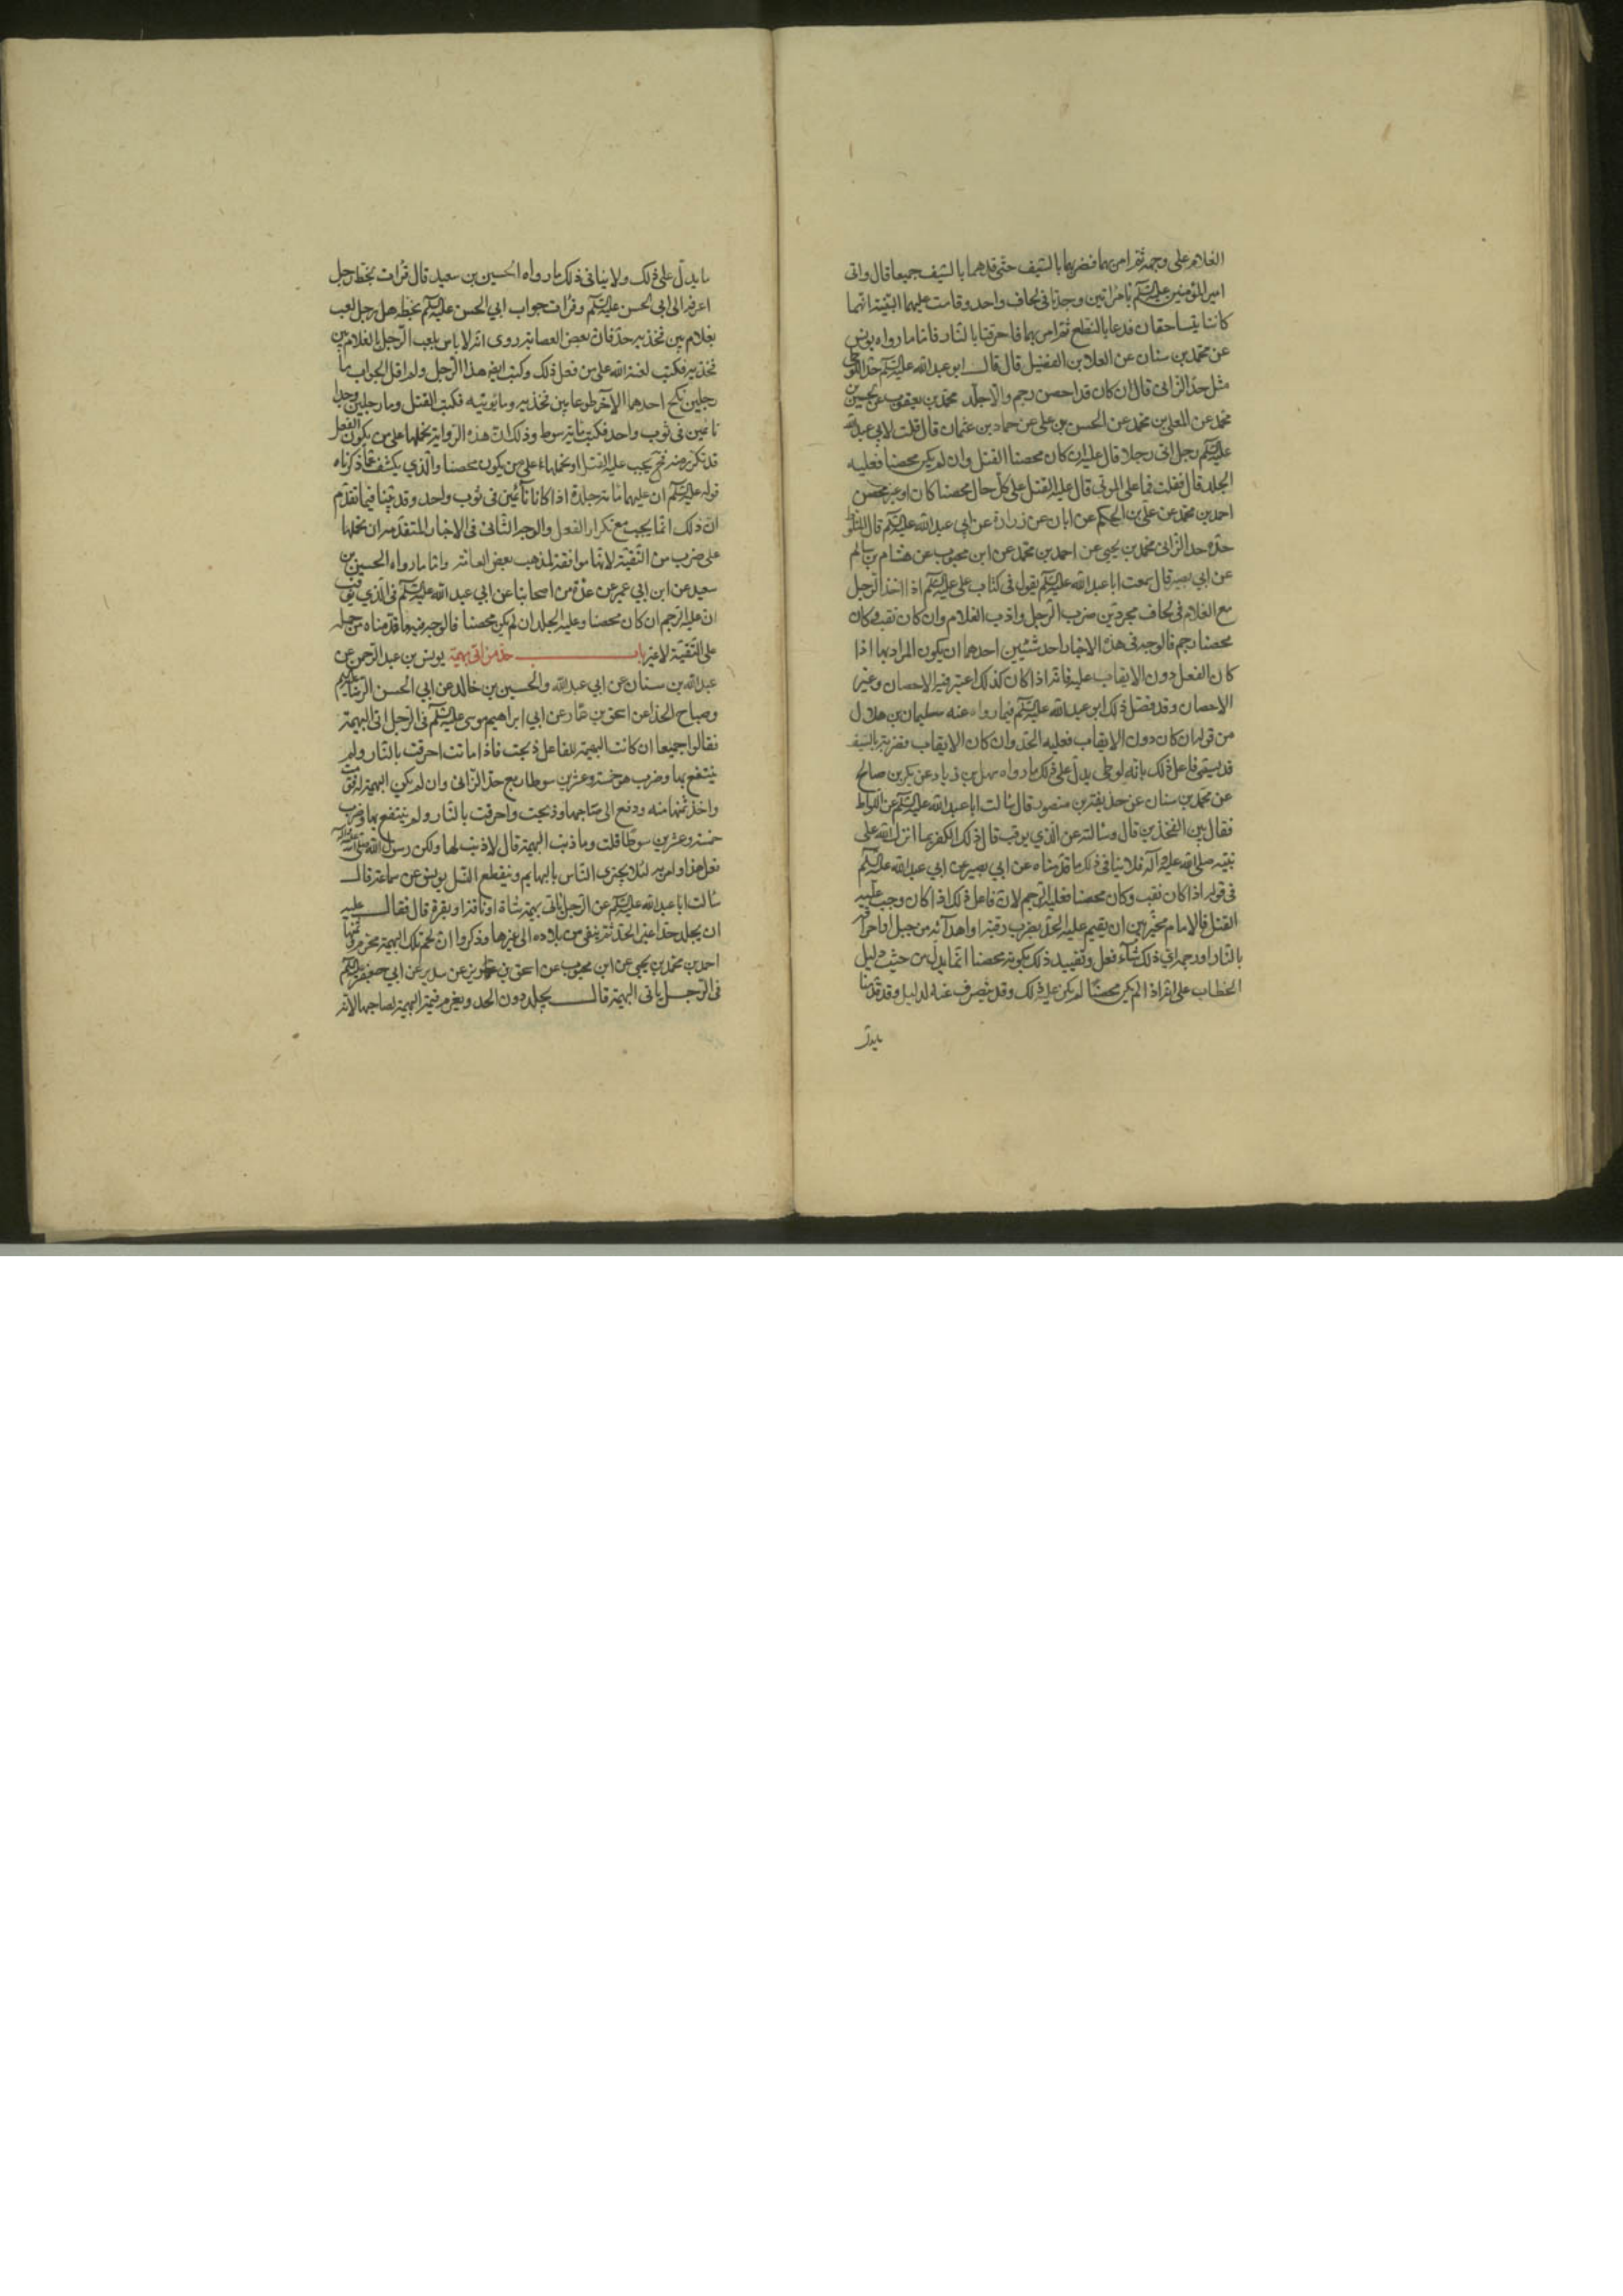 الغلام على وجهه ثم امر بهما فضربهما بالسيف حتى قدهما بالسيف جميعا قال واتى
امير المؤمنين عليه السلم بامراتين وجدتا فى لحاف واحد وقامت عليهما البينة انهما
كانتا يتساحقان فدعا بالنطع ثم امر بهما فاحرقتا بالنار فاما ما رواه يونس
عن محمد بن سنان عن العلا بن الفضيل قال قال ابو عبد الله عليه السلم حد اللوطى
مثل حد الزانى قال ان كان قد احصن رجم والا جلد محمد بن يعقوب عن الحسين بن
محمد عن المعلى بن محمد عن الحسن بن على عن حماد بن عثمان قال قلت لابي عبد الله
عليه السلم رجل اتى رجلا قال عليه ان كان محصنا القتل وان لم يكن محصنا فعليه
الجلد قال فقلت فما على الموتى قال عليه القتل على كل حال محصنا كان او غير محصن
احمد بن محمد عن على بن الحكم عن ابان عن زرارة عن ابي عبد الله عليه السلم قال المتلوط
حده حد الزانى محمد بن يحيى عن احمد بن محمد عن ابن محبوب عن هشام بن سالم
عن ابي بصير قال سمعت ابا عبد الله عليه السلم يقول فى كتاب على عليه السلم اذا اخذ الرجل
مع الغلام فى لحاف مجردين ضرب الرجل وادب الغلام وان كان ثقب وكان
محصنا رجم فالوجه فى هذه الاخبار احد شيئين احدهما ان يكون المراد بها اذا
كان الفعل دون الايقاب عليه فانه اذا كان كذلك اعتبر فيه الاحصان وغير
الاحصان وقد فصل ذلك ابو عبد الله عليه السلم فيما رواه عنه سليمان بن هلال
من قوله ان كان دون الايقاب فعليه الحد وان كان الايقاب فضربة بالسيف
قد يسمى فاعل ذلك بانه لوطى يدل على ذلك ما رواه سهل بن زياد عن بكر بن صالح
عن محمد بن سنان عن حذيفة بن منصور قال سالت ابا عبد الله عليه السلم عن اللواط
فقال بين الفخذين قال وسالته عن الذي يوقب قال ذلك الكفر بما انزل الله على
نبيه صلى الله عليه وآله فلا ينافى ذلك ما قدمناه عن ابي بصير عن ابي عبد الله عليه السلم
فى قوله اذا كان نقب وكان محصنا فعليه الرجم لان فاعل ذلك اذا كان وجب عليه
القتل فالامام مخير بين ان يقيم عليه الحد بضرب رقبته او اهدائه من جبل او احراقه
بالنار او رجمه اي ذلك شآء فعل وتقييد ذلك بكونه محصنا انما يدل من حيث دليل
الخطاب على انه اذا لم يكن محصنا لم يكن عليه ذلك وقد ينصرف عنه لدليل وقد قدمنا
مايدل
ما يدل على ذلك ولا ينافى ذلك ما رواه الحسين بن سعيد قال قرات بخط رجل
اعرفه الى ابي الحسن عليه السلم وقرات جواب ابي الحسن عليه السلم بخطه هل على رجل لعب
بغلام بين فخذيه حد فان بعض العصابة روى انه لا باس بلعب الرجل بالغلام بين
فخذيه فكتب لعنة الله على من فعل ذلك وكتب ايضا هذا الرجل ولم ار الجواب ما
رجلين نكح احدهما الآخر طوعا بين فخذيه وما توبته فكتب القتل وما حد رجلين وجدا
نائمين فى ثوب واحد فكتب مائة سوط وذلك ان هذه الرواية نحملها على من يكون الفعل
قد تكرر منه فحينئذ يجب عليه القتل او نحملها على من يكون محصنا والذي يكشف عما ذكرناه
قوله عليه السلم ان عليهما مائة جلدة اذا كانا نآئمين فى ثوب واحد وقد بينا فيما تقدم
ان ذلك انما يجب مع تكرار الفعل والوجه الثانى فى الاخبار المتقدمة ان نحملها
على ضرب من التقية لانها موافقة لمذهب بعض العامة واما ما رواه الحسين بن
سعيد عن ابن ابي عمير عن عدة من اصحابنا عن ابي عبد الله عليه السلم فى الذي يوقب
ان عليه الرجم ان كان محصنا وعليه الجلد ان لم يكن محصنا فالوجه فيه ما قدمناه من حمله
على التقية لا غير باب حد من اتى بهيمة يونس بن عبد الرحمن عن
عبد الله بن سنان عن ابي عبد الله والحسين بن خالد عن ابي الحسن الرضا عليه السلم
وصباح الحذا عن اسحق بن عمار عن ابي ابراهيم موسى عليه السلم فى الرجل اتى البهيمة
فقالوا جميعا ان كانت البهيمة للفاعل ذبحت فاذا ماتت احرقت بالنار ولم
ينتفع بها وضرب هو خمسة وعشرين سوطا ربع حد الزانى وان لم يكن البهيمة له قومت
واخذ ثمنها منه ودفع الى صاحبها وذبحت واحرقت بالنار ولم ينتفع بها وضرب
خمسة وعشرين سوطا قلت وما ذنب البهيمة قال لا ذنب لها ولكن رسول الله صلى الله عليه وآله
فعل هذا وامر به لئلا يجترى الناس بالبهايم وينقطع النسل يونس عن سماعة قال
سالت ابا عبد الله عليه السلم عن الرجل ياتى بهيمة شاة او ناقة او بقرة قال فقال عليه
ان يجلد حدا غير الحد ثم ينفى من بلاده الى غيرها وذكروا ان لحم تلك البهيمة محرم وثمنها
احمد بن محمد بن يحيى عن ابن محبوب عن اسحق بن جرير عن سدير عن ابي جعفر عليه السلم
فى الرجل ياتى البهيمة قال يجلد دون الحد ويغرم قيمة البهيمة لصاحبها لانه